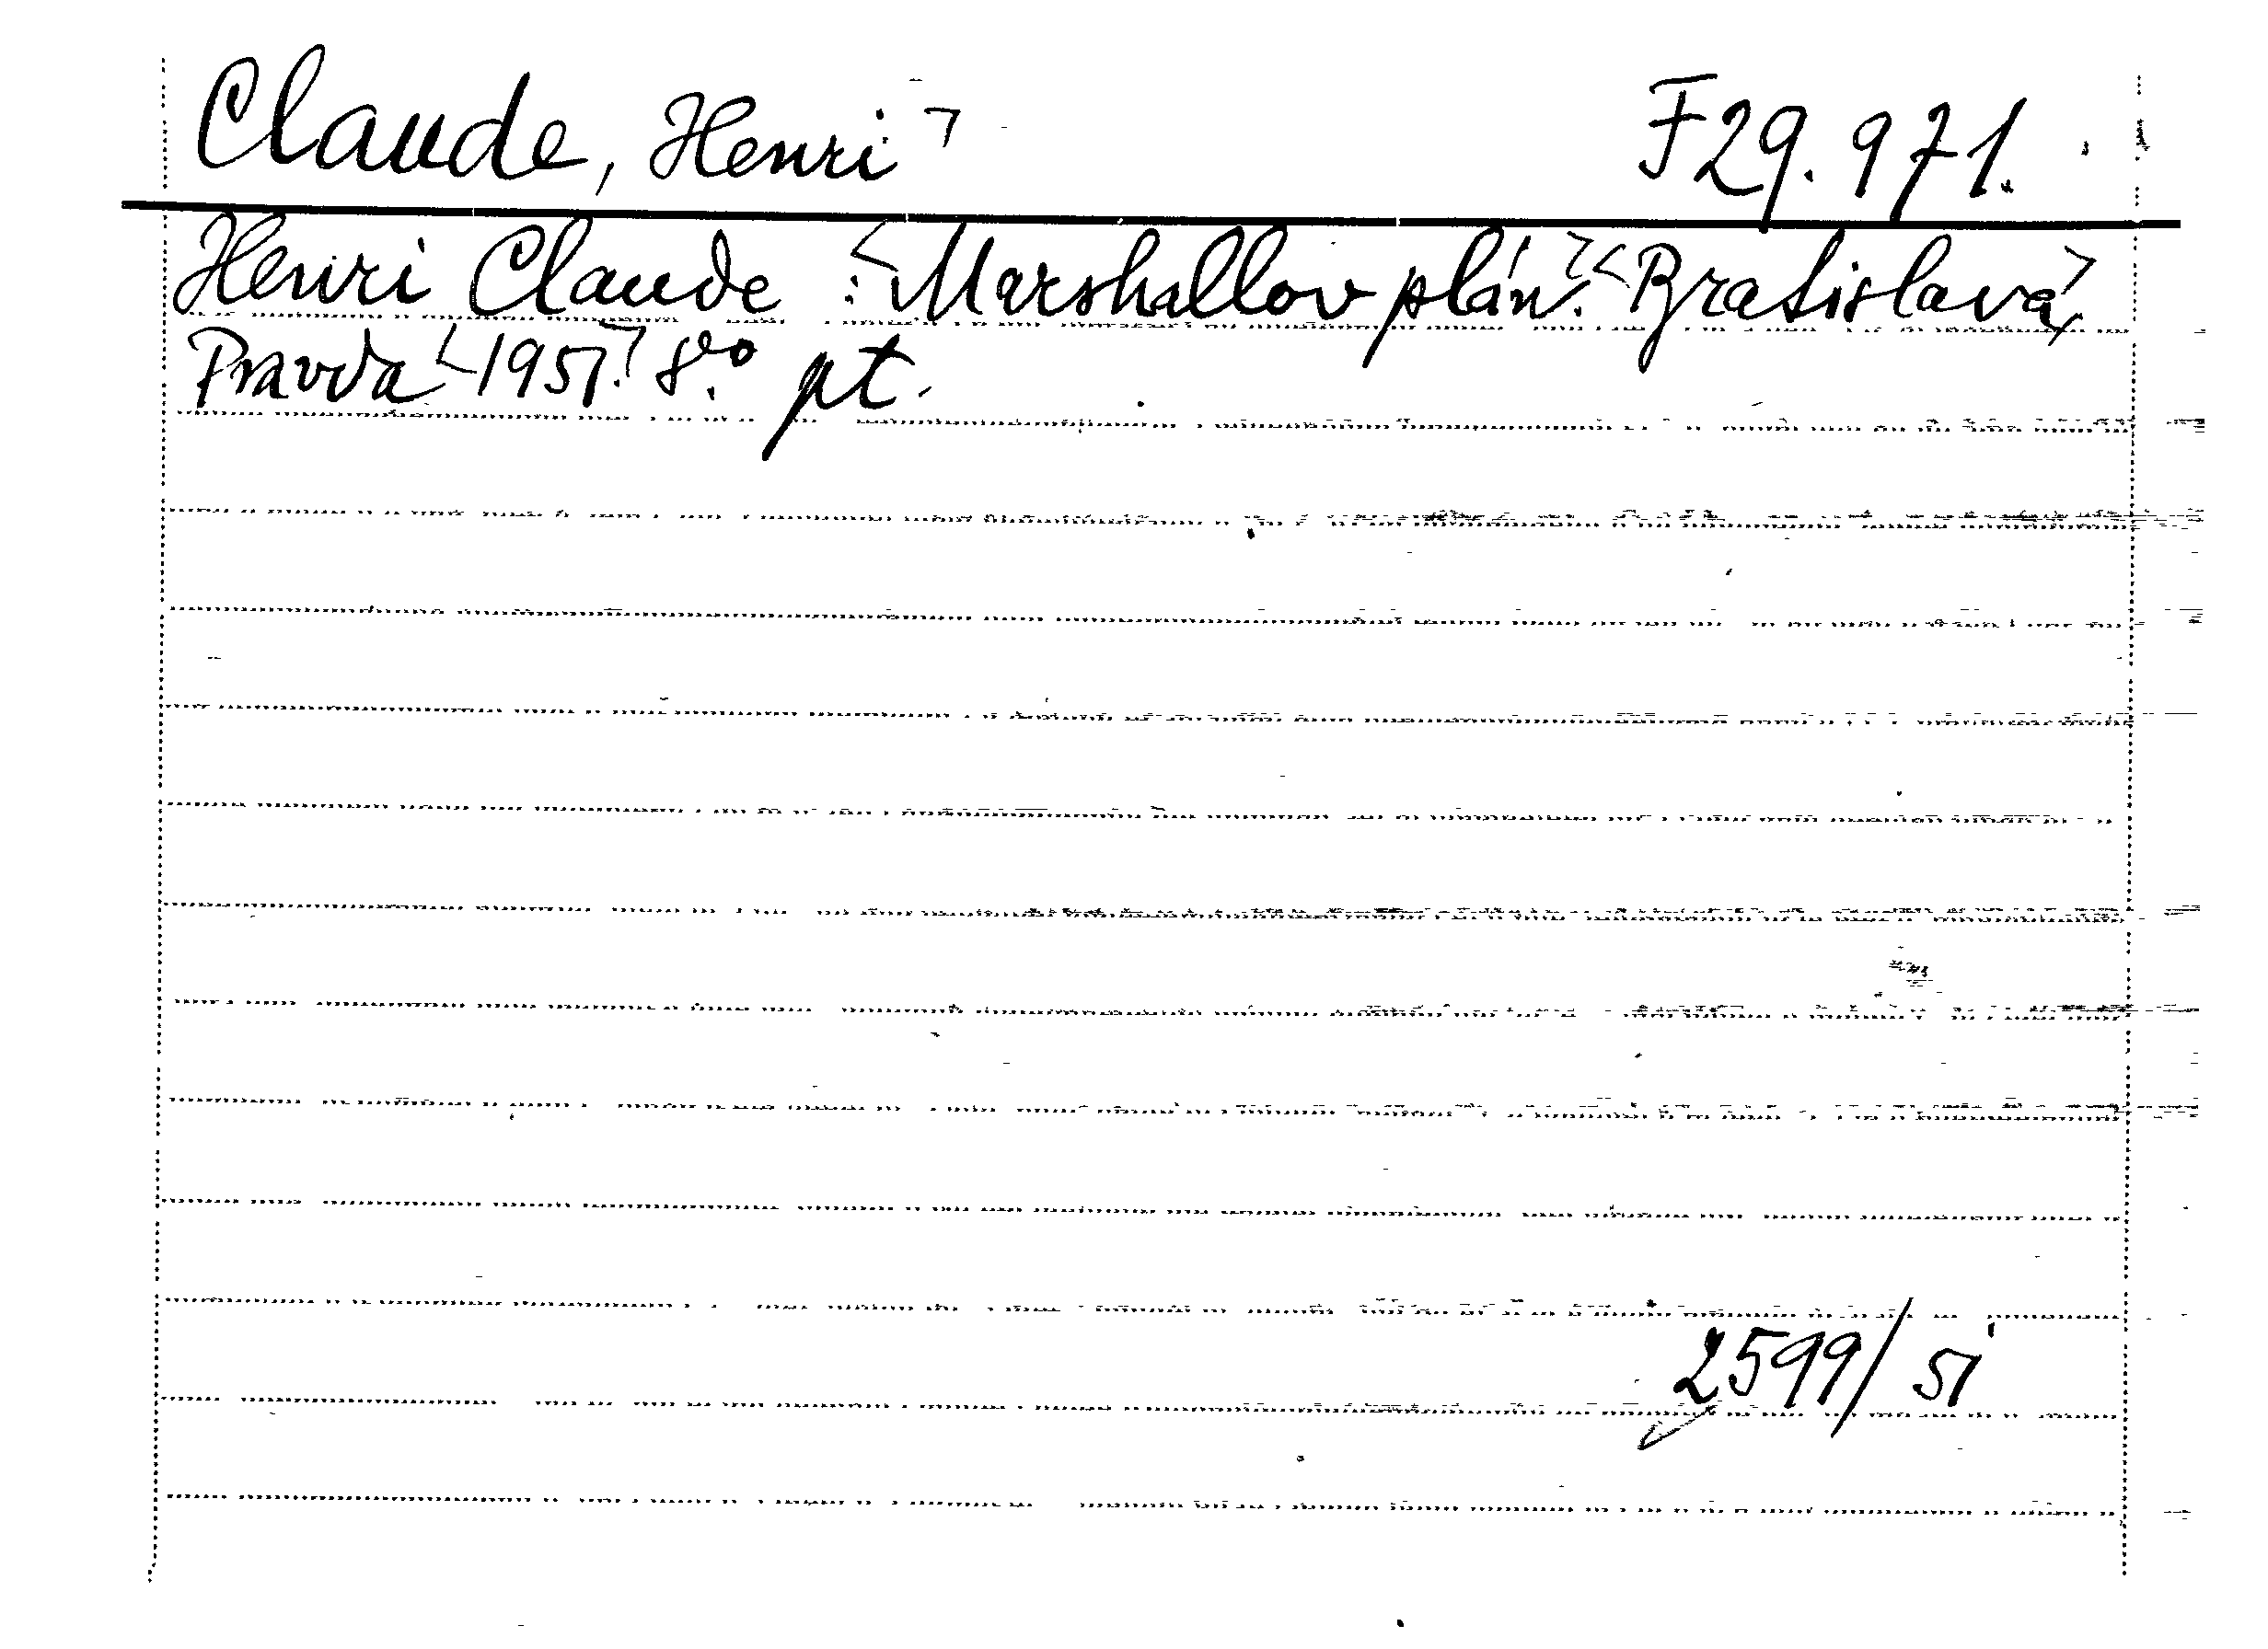 Claude, Henri F29.971.
Henri Claude : Marshallov plán. Bratislava,
Pravda 1951. 8.º pt.
2599/51